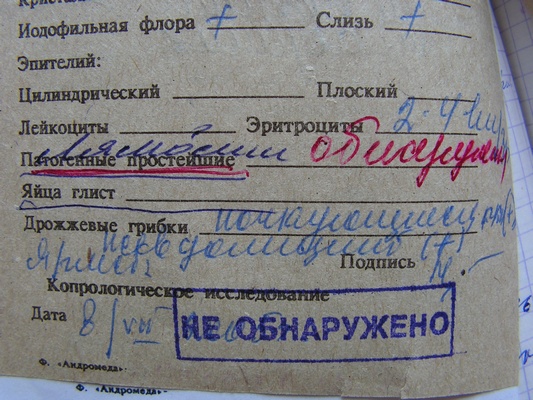 Иодофильная флора + Слизь +
Эпителий:
Цилиндрический Плоский
Лейкоциты Эритроциты 2-4
Патогенные простейшие Лямблии обнаружены
Яйца глист
Дрожжевые грибки почкующиеся
Подпись
Копрологическое исследование
Дата 8/VII
НЕ ОБНАРУЖЕНО
Ф. «Андромеда»
Ф. «Андромеда»